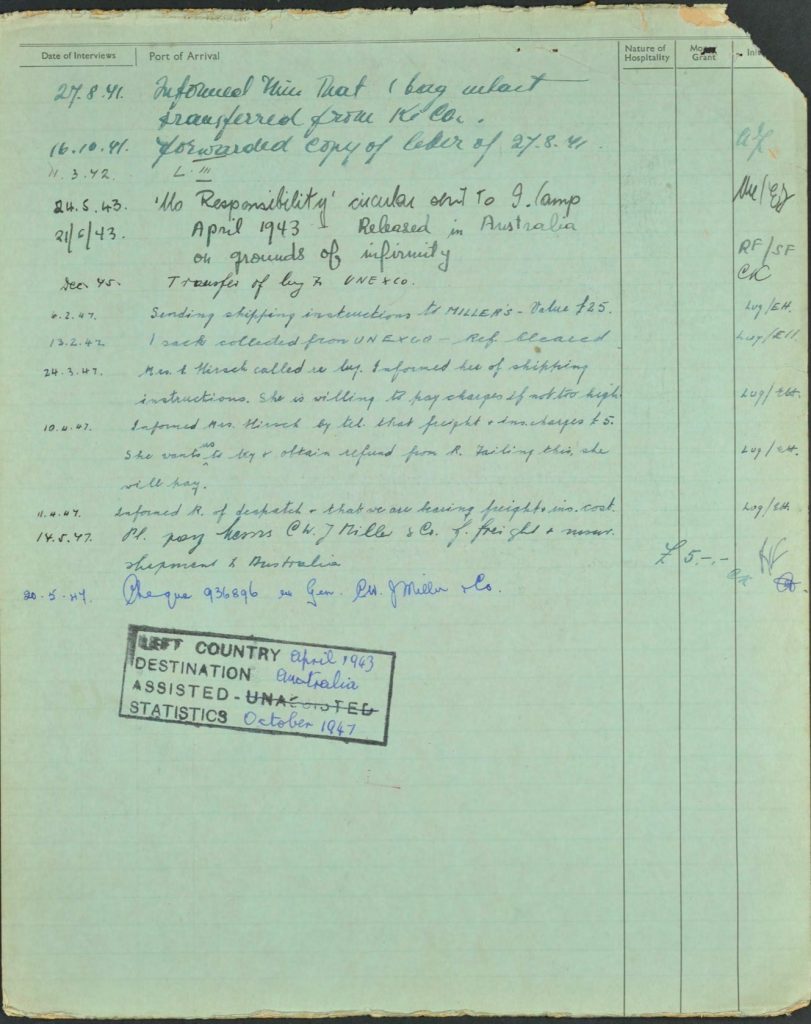 Date of Interviews Port of Arrival Nature of Hospitality Grant
27.8.41. Informed him that 1 bag intact
transferred from Ki Co.
16.10.41. forwarded copy of letter of 27.8.41
11.3.42. L. III
24.5.43. 'No Responsibility' circular sent to I. Camp
21/6/43. April 1943 - Released in Australia
on grounds of infirmity RF/SF
Dec. 45. Transfer of lug to UNEXCO. CK
6.2.47. Sending shipping instructions to MILLER'S - Value £25. Lug/EH.
13.2.47 1 sack collected from UNEXCO - Ref. cleared Lug/EH
24.3.47. Mrs. Hirsch called re lug. Informed her of shipping
instructions. She is willing to pay charges if not too high. Lug/EH.
10.4.47. Informed Mrs. Hirsch by tel. that freight + ins. charges £5.
She wants us to try + obtain refund from R. Failing this, she Lug/EH.
will pay.
11.4.47. Informed R. of despatch + that we are bearing freight + ins. cost. Lug/EH.
14.5.47. Pl. pay Messrs C.W.J. Miller & Co. f. freight + insur. HF
shipment to Australia £5.-.- CK
20.5.47. Cheque 936896 Gen. C.W.J Miller & Co.
LEFT COUNTRY April 1943
DESTINATION Australia
ASSISTED - UNASSISTED
STATISTICS October 1947